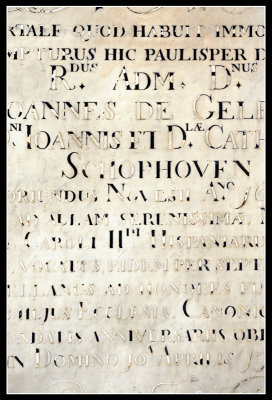 RTALE QUOD HABUIT IMMO
MPTURUS HIC PAULISPER D
R.DUS ADM. D.NUS
OANNES DE GEL
NI IOANNIS ET D.LÆ CATH
SCHOPHOVEN
ORIUNDUS NOVESII A.NO
AD AULAM SERENISSIMÆ
CAROLI II.DI HISPANIARU
VOCATUS IBIDEM PER SEPT
ELLANUS AD HONORES ET
HUJUS ECCLESIÆ CANONIC
NDATIS ANNIVERSARIIS OBI
IN DOMINO 10A APRILIS